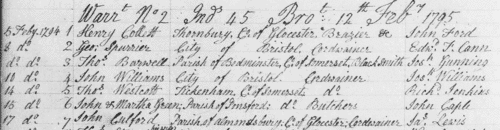 Warrt. No 2 Ind 45 Brot. 12th Feby 1795
5 Feby. 1794 1 Henry Collett Thornbury, Co. of Glocester Brazier &c John Ford
8 do 2 Geo. Spurrier City of Bristol. Cordwainer Edwd. T. Cann
do do 3 Thos. Barwell Parish of Bedminster, C. of Somerset, Blacksmith Jos. Gunning
10 do 4 John Williams City of Bristol. Cordwainer Jos. Williams
14 do 5 Thos. Westcott Tickenham, C. of Somerset do Richd. Jenkins
15 do 6 John & Martha Green; Parish of do Butchers John Caple
17 do 7 John Parish of Almondsbury, C. of Glocester; Cordwainer Jas. Lewis